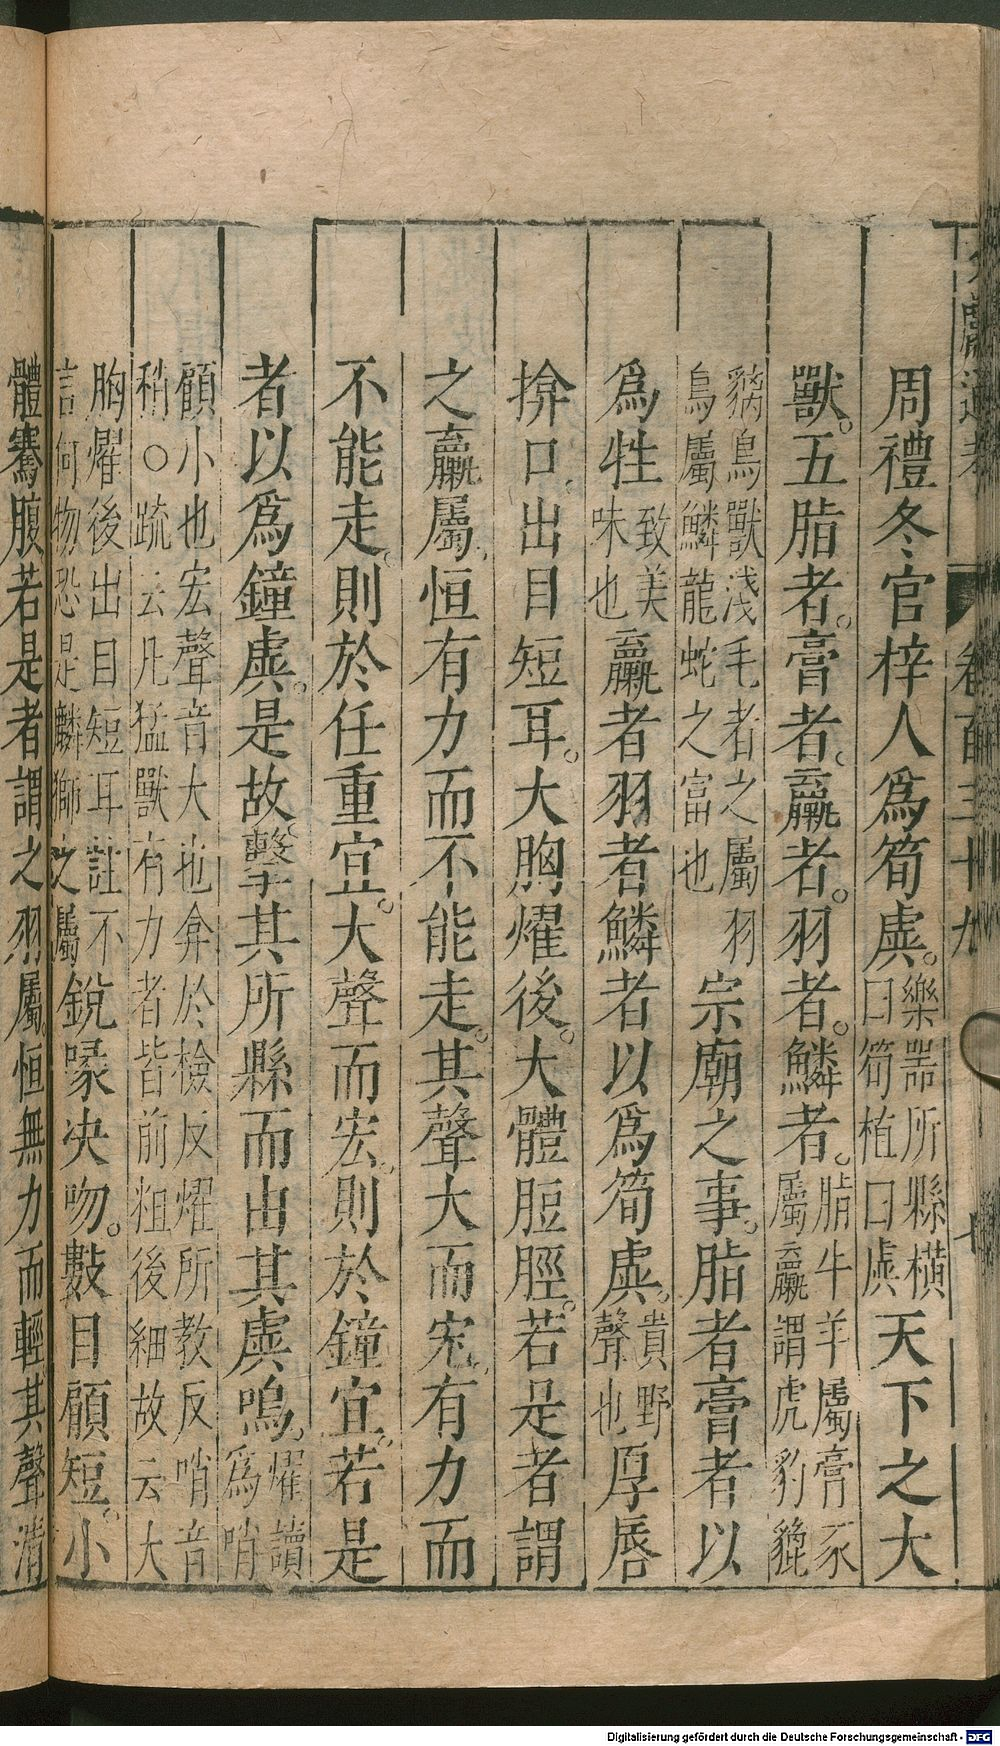 周禮冬官梓人爲筍虡。樂器所縣橫曰筍植曰虡天下之大
獸。五脂者。膏者。臝者。羽者。鱗者。脂牛羊屬膏豕屬云臝謂虎豹貔
貐鳥獸淺毛者之屬羽鳥屬鱗龍蛇之富也宗廟之事。脂者膏者以
爲牲致美味也臝者羽者鱗者以爲筍虡。貴野聲也厚唇
揜口出目短耳。大胸燿後。大體脰脛。若是者謂
之臝屬恒有力而不能走。其聲大而宏有力而
不能走。則於任重宜。大聲而宏。則於鐘宜。若是
者以爲鐘虡。是故擊其所縣而由其虡鳴。燿讀爲哨
顧小也宏聲音大也弇於檢反燿所教反哨音稍○疏云凡猛獸有力者皆前粗後細故云大
胸燿後出目短耳註不言何物恐是麟獅之屬銳喙決吻。數目顧短。小
體騫腹若是者謂之羽屬。恒無力而輕其聲清
卷百三十九
七
Digitalisierung gefördert durch die Deutsche Forschungsgemeinschaft - DFG